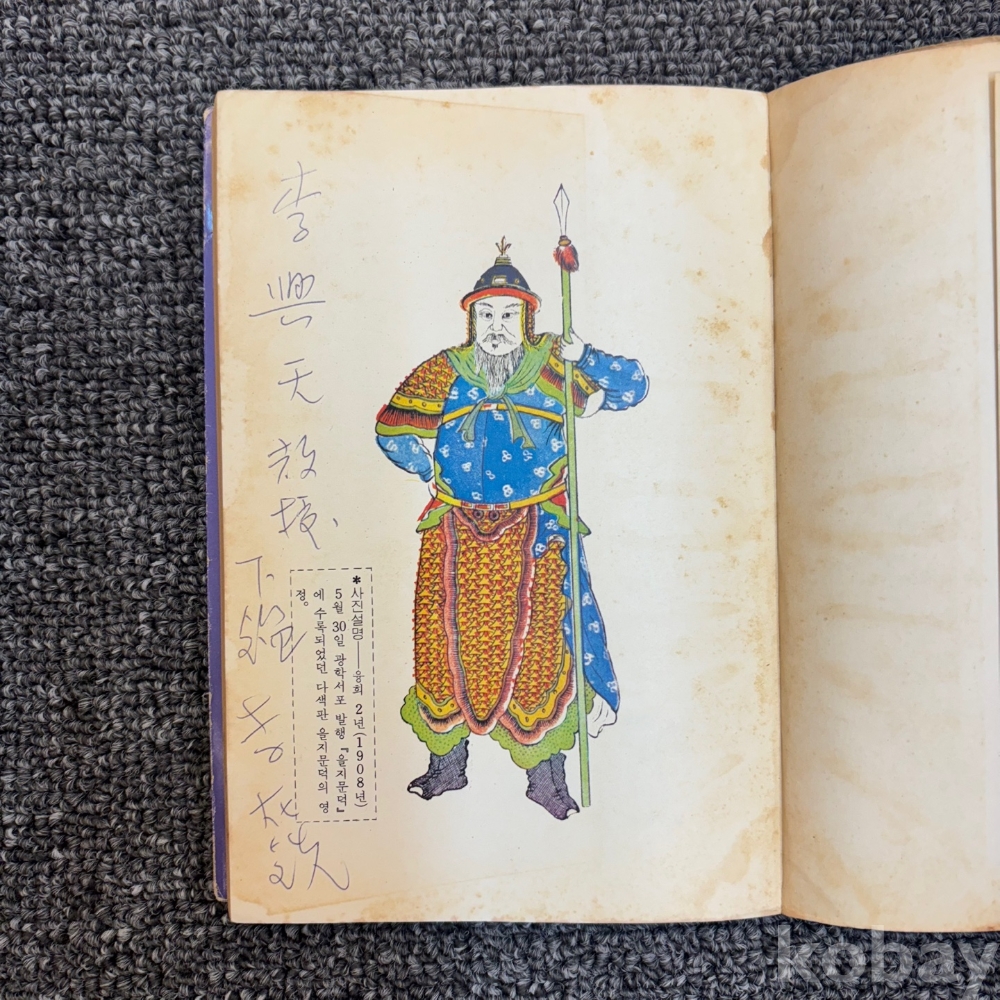 李興天教授、
*사진설명――융희 2년(1908년)
5월 30일 광학서포 발행 『을지문덕』
에 수록되었던 다색판 을지문덕의 영
정。
kobay